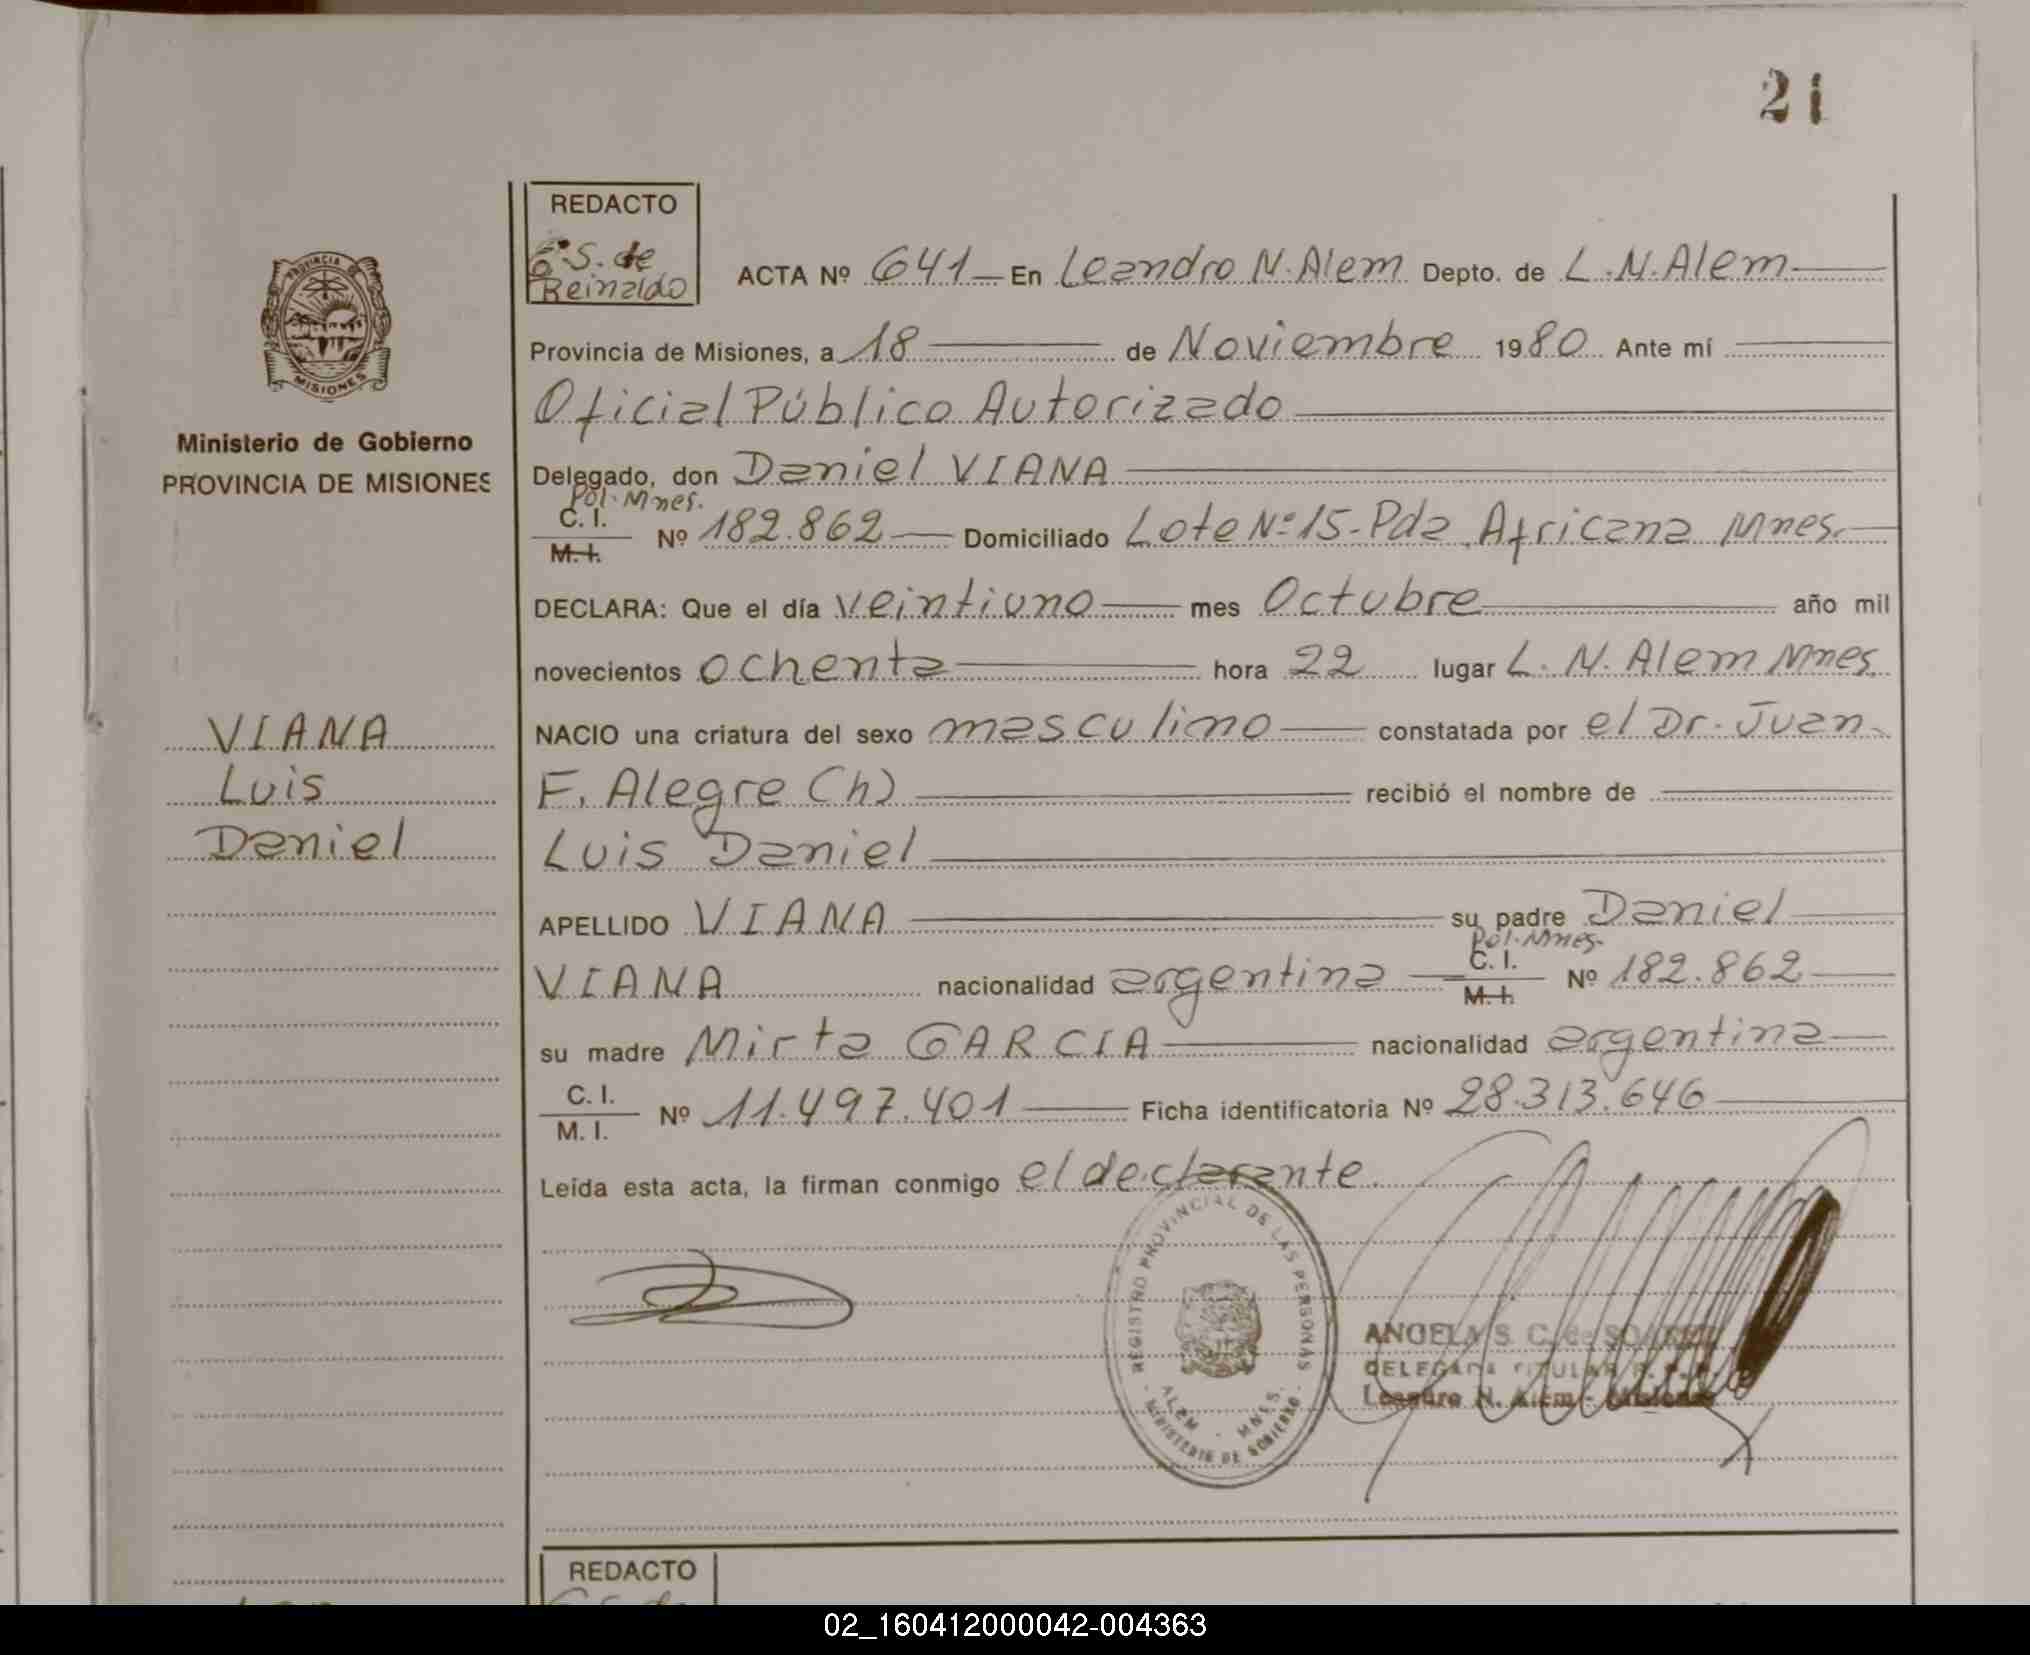 21
REDACTO
S. de
Reinaldo
ACTA Nº 641 En Leandro N. Alem Depto. de L. N. Alem
Provincia de Misiones, a 18 de Noviembre 1980 Ante mí
Oficial Público Autorizado
Delegado, don Daniel VIANA
Pol. Mnes.
C. I.
M. I.
Nº 182.862 Domiciliado Lote Nº 15-Pda. Africana Mnes.
DECLARA: Que el día veintiuno mes Octubre año mil
novecientos ochenta hora 22 lugar L. N. Alem Mnes.
NACIO una criatura del sexo masculino constatada por el Dr. Juan
F. Alegre (h) recibió el nombre de
Luis Daniel
APELLIDO VIANA su padre Daniel
Pol. Mnes.
VIANA nacionalidad argentina C. I. M. I. Nº 182.862
su madre Mirta GARCIA nacionalidad argentina
C. I.
M. I.
Nº 11.497.401 Ficha identificatoria Nº 28.313.646
Leída esta acta, la firman conmigo el declarante.
PROVINCIA DE
MISIONES
Ministerio de Gobierno
PROVINCIA DE MISIONES
VIANA
Luis
Daniel
REGISTRO PROVINCIAL DE LAS PERSONAS
ALEM - MNES.
MINISTERIO DE GOBIERNO
ANGELA S. C. de
DELEGADA TITULAR R. P. P.
Leandro N. Alem - Misiones
REDACTO
02_160412000042-004363